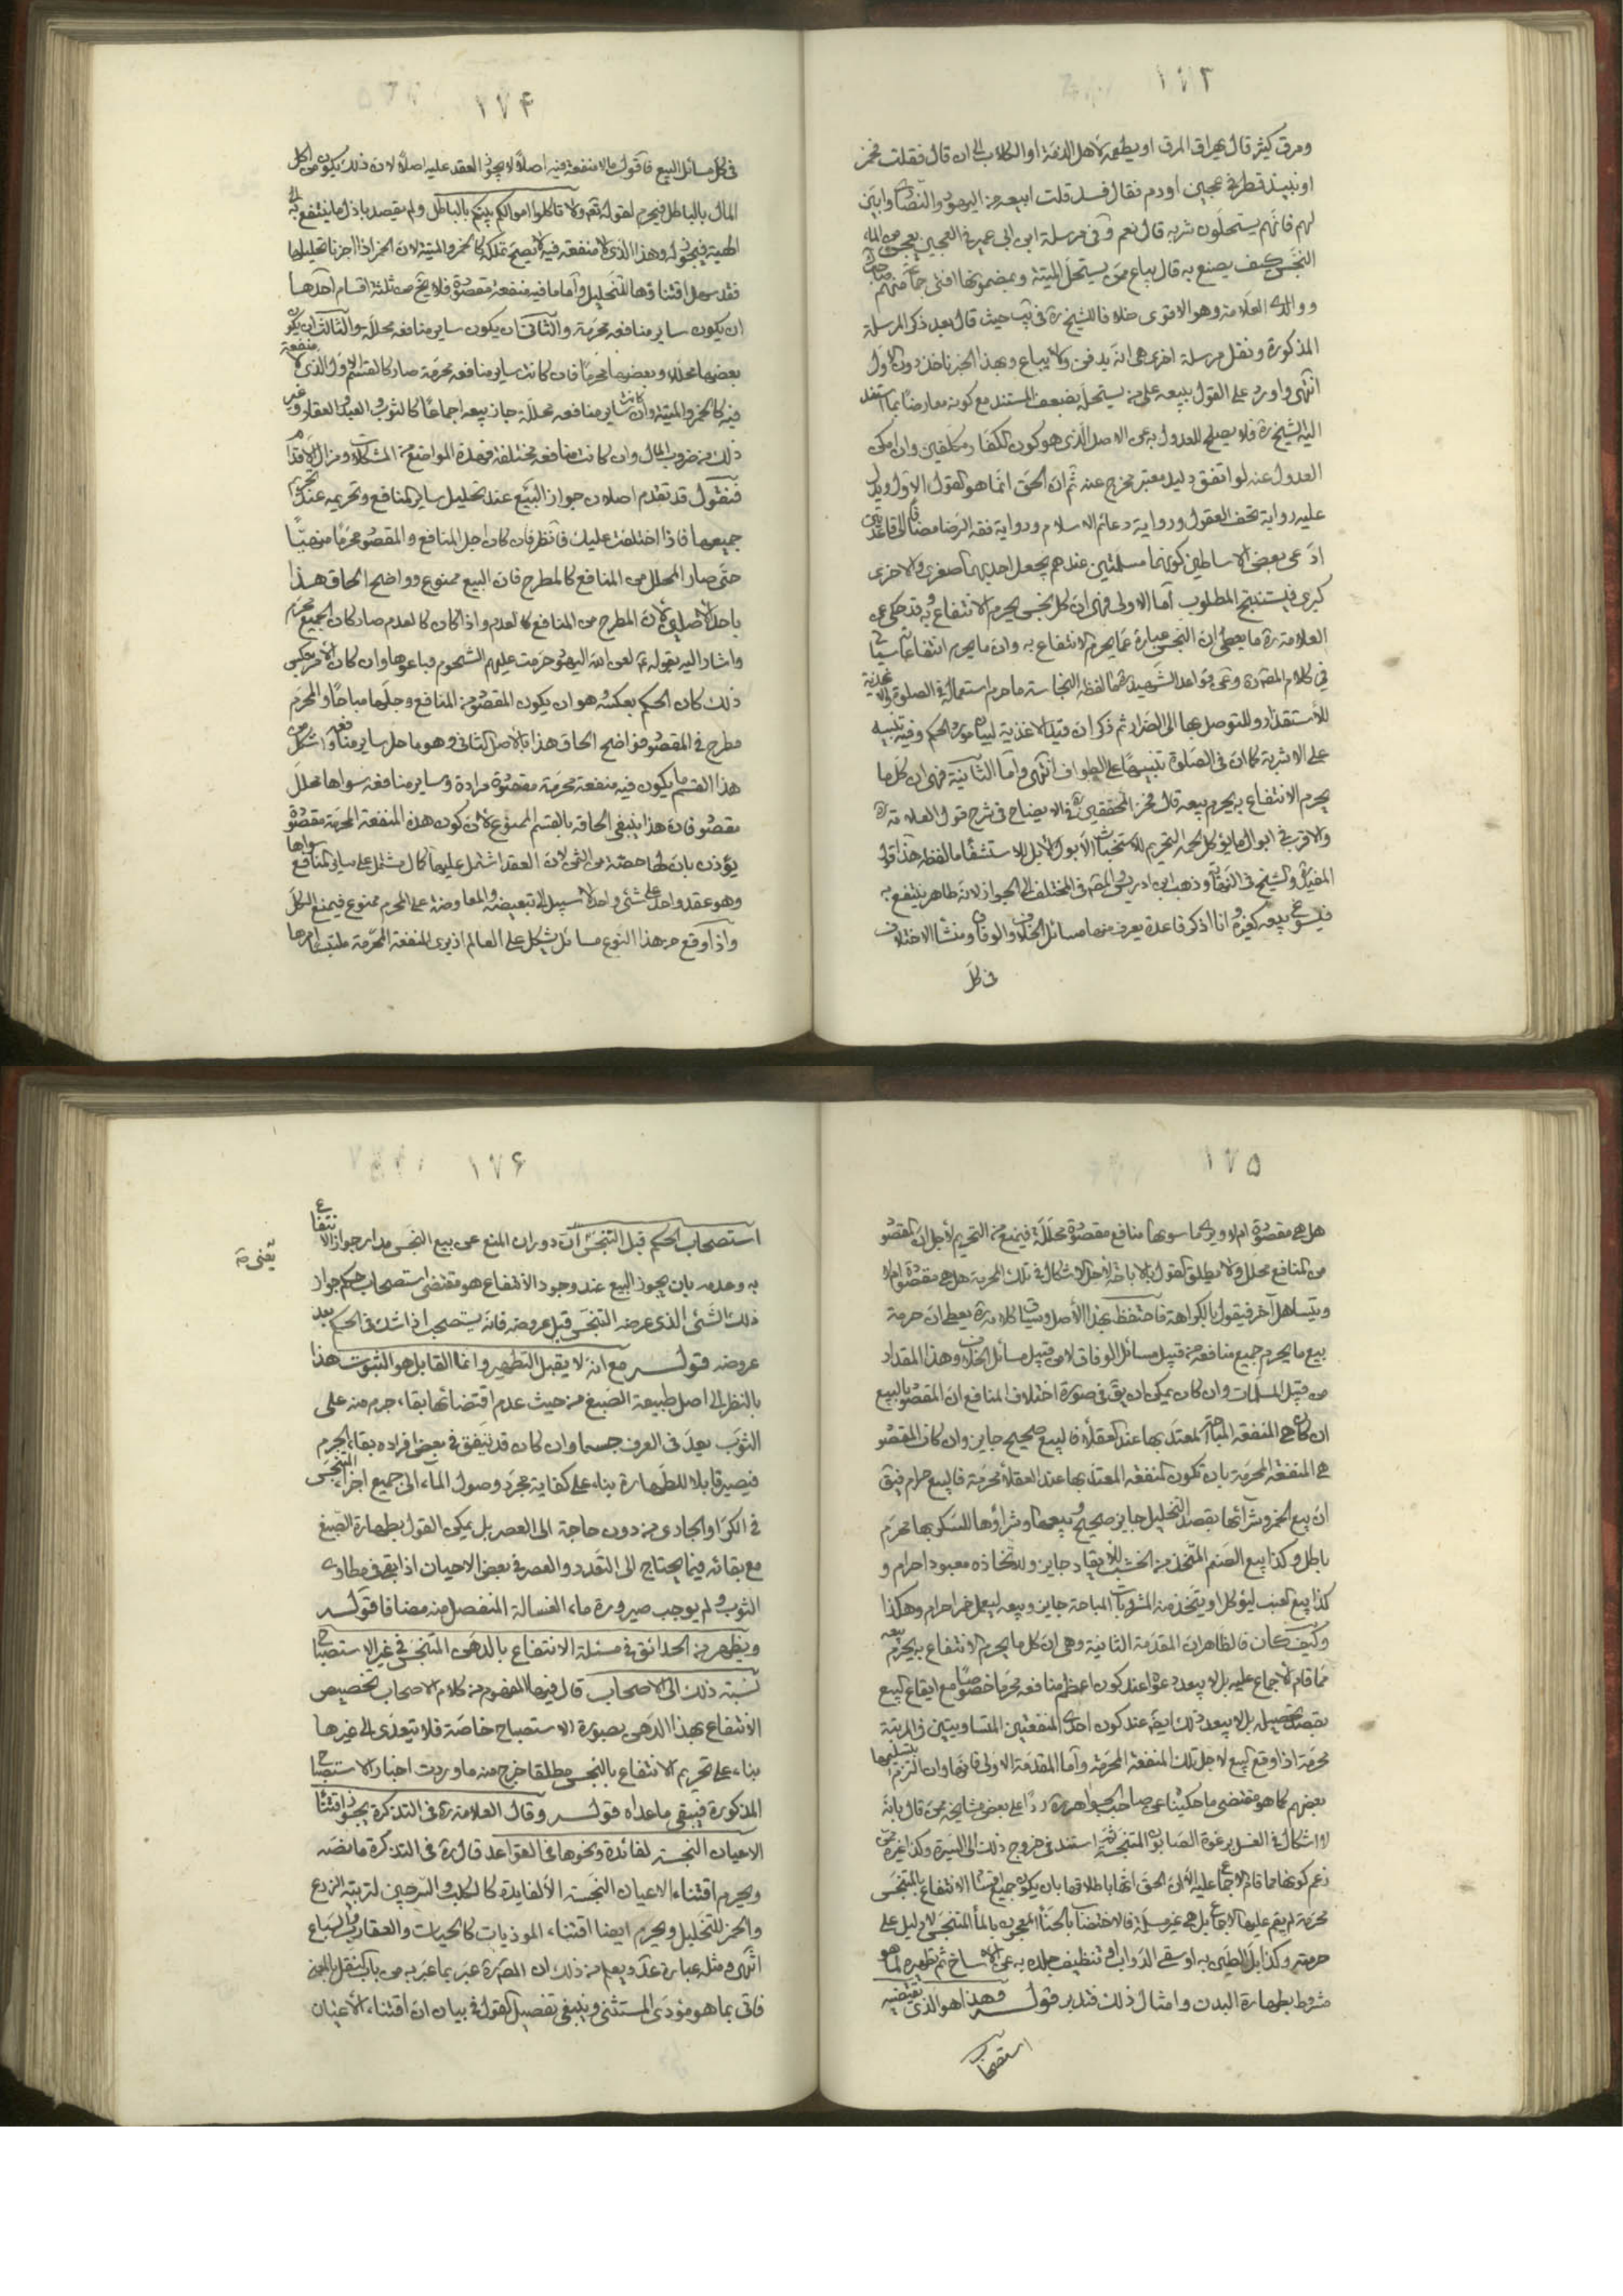 ١٧٣
ومرق كثير قال يهراق المرق او يطعمه لاهل الذمة او الكلاب الى ان قال فقلت فخمر
او نبيذ قطر فى عجين او دم فقال فسد قلت ابيعه من اليهود والنصارى وابين
لهم فانهم يستحلون شربه قال نعم وفى مرسلة ابن ابى عمير فى العجين يعجن من الماء
النجس كيف يصنع به قال يباع ممن يستحل الميتة وبمضمونها افتى جماعة منهم
ووالده العلامة وهو الاقوى خلافا للشيخ ره فى يب حيث قال بعد ذكر المرسلة
المذكورة ونقل مرسلة اخرى هى انه يدفن ولا يباع وبهذا الخبر ناخذ دون الاول
انتهى واورد على القول ببيعه على من يستحله بضعف المستند مع كونه معارضا بما استند
اليه الشيخ ره فلا يصلح للعدول به عن الاصل الذى هو كون الكفار مكلفين وان امكن
العدول عنه لو اتفق دليل معتبر مخرج عنه ثم ان الحق انما هو القول الاول ويدل
عليه رواية تحف العقول ورواية دعائم الاسلام ورواية فقه الرضا مضافا الى قاعدتين
ادعى بعض الاساطين كونهما مسلمتين عندهم يجعل احديهما صغرى والاخرى
كبرى فيستنتج المطلوب اما الاولى فهى ان كل نجس يحرم الانتفاع به وقد حكى عن
العلامة ره ما يعطى ان النجس عبارة عما يحرم الانتفاع به وان ما يحرم انتفاعا سياتى
فى كلام المصنف ره وعن قواعد الشهيد ره ما لفظه النجاسة ما حرم استعماله فى الصلوة والاغذية
للاستقذار وللتوصل بها الى الضرار ثم ذكر ان قيد الاغذية لبيان مورد الحكم وفيه تنبيه
على الاشربة كما ان فى الصلوة تنبيها على الطواف انتهى واما الثانية فهى ان كل ما
يحرم الانتفاع به يحرم بيعه قال فخر المحققين ره فى الايضاح فى شرح قول العلامة ره
والاقرب فى ابوال ما يؤكل لحمه التحريم للاستخباث الا بول الابل للاستشفاء ما لفظه هذا قول
المفيد والشيخ فى النهاية وذهب ابن ادريس والمص فى المختلف الى الجواز لانه طاهر ينتفع به
فيسوغ بيعه كغيره وانا اذكر قاعدة يعرف منها مسائل الخلاف والوفاق ومنشا الاختلاف
فى كل
١٧۴
فى كل مسائل البيع فاقول ما لا منفعة فيه اصلا لا يجوز العقد عليه اصلا لان ذلك يكون من اكل
المال بالباطل فيحرم لقوله تعم ولا تاكلوا اموالكم بينكم بالباطل ولم يقصد باذل ما ينتفع به الى
الهبة فيجوز له وهذا الذى لا منفعة فيه لا يصح تملكه كالخمر والميتة لان الخمر اذا اجزنا تخليلها
فقد سهل اقتناؤها للتخليل واما ما فيه منفعة مقصودة فلا يخ من ثلثة اقسام احدها
ان يكون ساير منافعه محرمة والثانى ان يكون ساير منافعه محللة والثالث ان يكون
بعضها محللة وبعضها محرما فان كانت ساير منافعه محرمة صار كالقسم الاول الذى لا منفعة
فيه كالخمر والميتة وان كانت ساير منافعه محللة جاز بيعه اجماعا كالثوب والعبد والعقار وغير
ذلك من ضروب المال وان كانت منافعه مختلفة فهذه المواضع من المشكلات ومزال الاقدام
فنقول قد تقدم اصلان جواز البيع عند تحليل ساير المنافع وتحريمه عند تحريم
جميعها فاذا اختلفت عليك فانظر فان كان اجل المنافع والمقصود محرما منهيا
حتى صار المحلل من المنافع كالمطرح فان البيع ممنوع وواضح الحاق هذا
باحد الاصلين لان المطرح من المنافع كالعدم واذا كان كالعدم صار كان الجميع محرم
واشار اليه بقوله ع لعن الله اليهود حرمت عليهم الشحوم فباعوها وان كان الامر بعكس
ذلك كان الحكم بعكسه هو ان يكون المقصود من المنافع وجلها مباحا والمحرم
مطرح فى المقصود فواضح الحاق هذا بالاصل الثانى وهو ما حل ساير منافعه واشكل من
هذا القسم ما يكون فيه منفعة محرمة مقصودة مرادة وساير منافعه سواها محلل
مقصود فان هذا ينبغى الحاقه بالقسم الممنوع لان كون هذه المنفعة المحرمة مقصودة
يؤذن بان لها حصة من الثمن لان العقد اشتمل عليها كما اشتمل على ساير المنافع سواها
وهو عقد واحد على شئ واحد لا سبيل الى تبعيضه والمعاوضة على المحرم ممنوع فيمنع الكل
واذا وقع من هذا النوع مسائل يشكل على العالم اذ يرى المنفعة المحرمة ملتبسا امرها
١٧۵
هل هى مقصودة ام لا ويرى ما سوتها منافع مقصودة محللة فيمنع من التحريم لاجل ان المقصود
من المنافع محلل ولا يطلق القول بالاباحة لاجل الاشكال فى تلك المحرمة هل هى مقصودة ام لا
ويتساهل آخر فيقول بالكراهة فاحتفظ بهذا الاصل وسياق كلامه ره يعطى ان حرمة
بيع ما يحرم جميع منافعه من قبيل مسائل الوفاق لا من قبيل مسائل الخلاف وهذا المقدار
من قبيل المسلمات وان كان يمكن ان يق فى صورة اختلاف المنافع ان المقصود بالبيع
ان كان هى المنفعة المباحة المعتد بها عند العقلاء فالبيع صحيح جايز وان كان المقصود
هى المنفعة المحرمة بان تكون المنفعة المعتد بها عند العقلاء محرمة فالبيع حرام فيق
ان بيع الخمر وشرائها بقصد التخليل جايز صحيح وبيعها وشراؤها للسكر بها محرم
باطل وكذا بيع الصنم المتخذ من الخشب للايقاد جايز ولاتخاذه معبودا حرام و
كذا بيع العنب ليؤكل او يتخذ منه المشروبات المباحة جايز وبيعه ليعمل خمرا حرام وهكذا
وكيف كان فالظاهر ان المقدمة الثانية وهى ان كل ما يحرم الانتفاع به يحرم بيعه
مما قام الاجماع عليه بل لا يبعد دعواه عند كون اعظم منافعه محرما خصوصا مع ايقاع البيع
بقصد تحصيله بل لا يبعد ذلك ايضا عند كون احدى المنفعتين المتساويتين فى المرتبة
محرمة اذا وقع البيع لاجل تلك المنفعة المحرمة واما المقدمة الاولى فانها وان التزم بتسليمها
بعضهم كما هو مقتضى ما حكينا عن صاحب الجواهر ره ردا على بعض مشايخه ممن قال بانه
لا اشكال فى الغسل برغوة الصابون المتنجسة استند فى خروج ذلك الى السيرة وكذا غيره ممن
زعم كونها مما قام الاجماع عليه الا ان الحق انها باطلاقها بان يكون جميع اقسام الانتفاع بالمتنجس
محرمة لم يقم عليها الاجماع بل هى غير مسلمة فالاختضاب بالحناء المعجون بالماء المتنجس لا دليل على
حرمته وكذا بل الطين به او سقى الدواب او تنظيف جلده به عن الاوساخ ثم تطهيره لما هو
مشروط بطهارة البدن وامثال ذلك فتدبر قوله وهذا هو الذى يقتضيه
استصحاب
١٧۶
استصحاب الحكم قبل التنجس ان دوران المنع عن بيع النجس مدار جواز الانتفاع
يعنى
به وعدمه بان يجوز البيع عند وجود الانتفاع هو مقتضى استصحاب حكم جواز
ذلك الشئ الذى عرضه التنجس قبل عروضه فانه يستصحب اذا شك فى الحكم بعد
عروضه قوله مع انه لا يقبل التطهير وانما القابل هو الثوب هذا
بالنظر الى اصل طبيعة الصبغ من حيث عدم اقتضائها بقاء جرم منه على
الثوب يعد فى العرف جسما وان كان قد يتفق فى بعض افراده بقاء الجرم
فيصير قابلا للطهارة بناء على كفاية مجرد وصول الماء الى جميع اجزاء المتنجس
فى الكر او الجارى من دون حاجة الى العصر بل يمكن القول بطهارة الصبغ
مع بقائه فيما يحتاج الى التعدد والعصر فى بعض الاحيان اذا بقى فى مطاوى
الثوب ولم يوجب صيرورة ماء الغسالة المنفصل منه مضافا قوله
ويظهر من الحدائق فى مسئلة الانتفاع بالدهن المتنجس فى غير الاستصباح
نسبة ذلك الى الاصحاب قال فيها المفهوم من كلام الاصحاب تخصيص
الانتفاع بهذا الدهن بصورة الاستصباح خاصة فلا يتعدى الى غيرها
بناء على تحريم الانتفاع بالنجس مطلقا خرج منه ما وردت اخبار الاستصباح
المذكورة فيبقى ما عداه قوله وقال العلامة ره فى التذكرة يجوز اقتناء
الاعيان النجسة لفائدة ونحوها فى القواعد قال ره فى التذكرة ما نصه
ويحرم اقتناء الاعيان النجسة الا لفايدة كالكلب والسرجين لتربية الزرع
والخمر للتخليل ويحرم ايضا اقتناء الموذيات كالحيات والعقارب والسباع
انتهى ومثله عبارة عد ويعلم من ذلك ان المص ره عبر بما عبر به من باب النقل بالمعنى
فاتى بما هو مؤدى المستثنى وينبغى تفصيل القول فى بيان ان اقتناء الاعيان